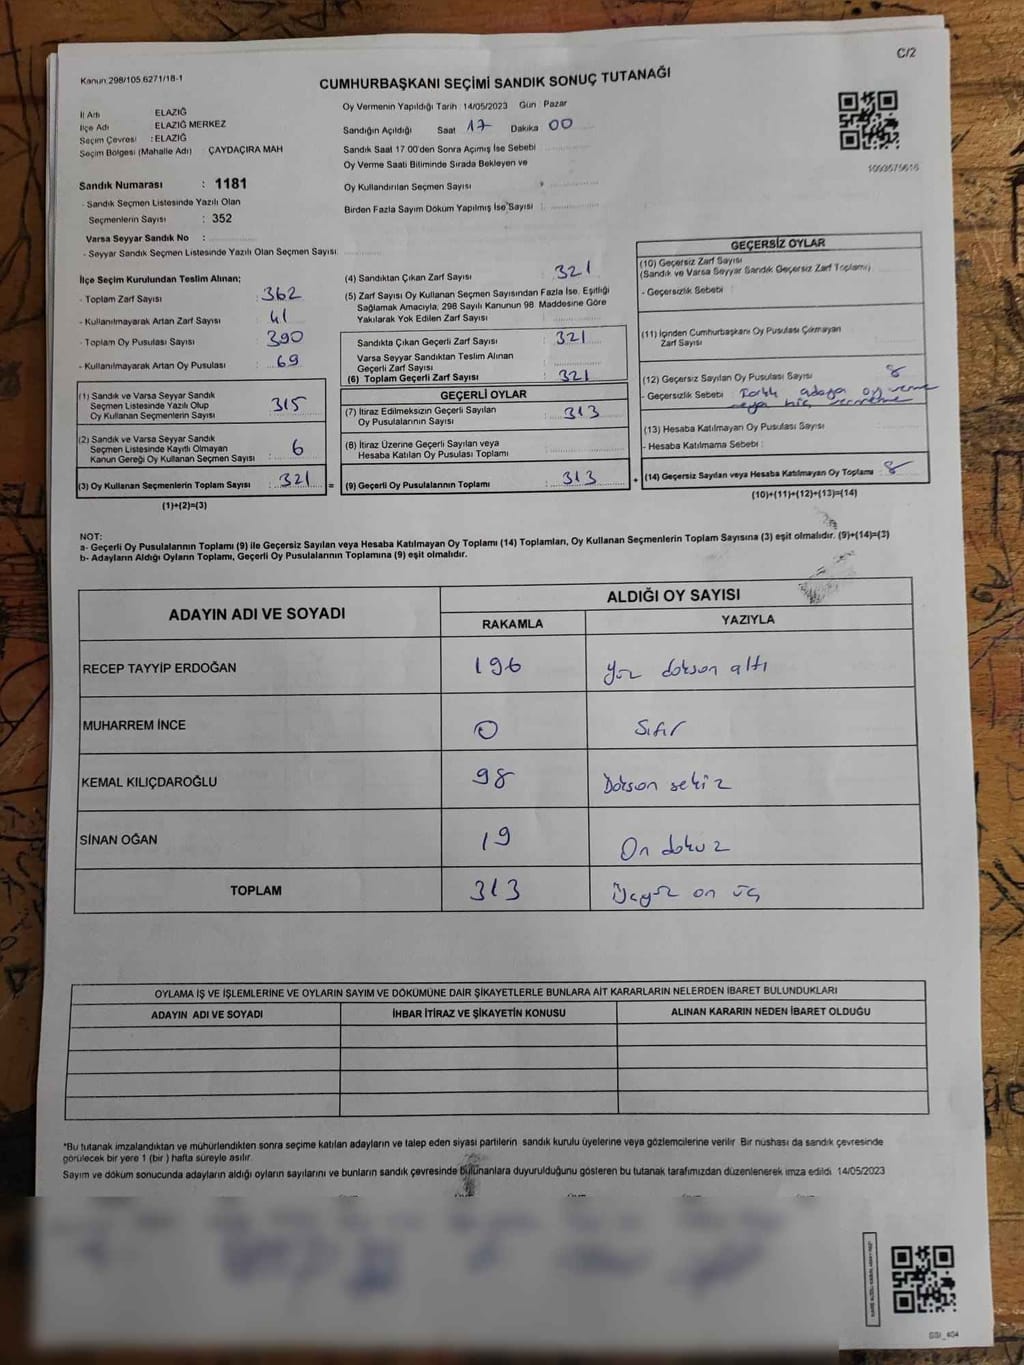 C/2
Kanun 298/105 6271/18-1
CUMHURBAŞKANI SEÇİMİ SANDIK SONUÇ TUTANAĞI
İl Adı ELAZIĞ
İlçe Adı ELAZIĞ MERKEZ
Seçim Çevresi : ELAZIĞ
Seçim Bölgesi (Mahalle Adı) ÇAYDAÇIRA MAH
Oy Vermenin Yapıldığı Tarih : 14/05/2023 Gün : Pazar
Sandığın Açıldığı Saat 17 Dakika 00
Sandık Saat 17 00'den Sonra Açımış İse Sebebi
Oy Verme Saati Bitiminde Sırada Bekleyen ve
Oy Kullandırılan Seçmen Sayısı
Birden Fazla Sayım Döküm Yapılmış İse Sayısı :
1093575616
Sandık Numarası : 1181
- Sandık Seçmen Listesinde Yazılı Olan
Seçmenlerin Sayısı : 352
Varsa Seyyar Sandık No :
- Seyyar Sandık Seçmen Listesinde Yazılı Olan Seçmen Sayısı
İlçe Seçim Kurulundan Teslim Alınan;
- Toplam Zarf Sayısı : 362
- Kullanılmayarak Artan Zarf Sayısı : 41
- Toplam Oy Pusulası Sayısı : 390
- Kullanılmayarak Artan Oy Pusulası : 69
(1) Sandık ve Varsa Seyyar Sandık
Seçmen Listesinde Yazılı Olup
Oy Kullanan Seçmenlerin Sayısı : 315
(2) Sandık ve Varsa Seyyar Sandık
Seçmen Listesinde Kayıtlı Olmayan
Kanun Gereği Oy Kullanan Seçmen Sayısı : 6
(3) Oy Kullanan Seçmenlerin Toplam Sayısı : 321 =
(1)+(2)=(3)
(4) Sandıktan Çıkan Zarf Sayısı : 321
(5) Zarf Sayısı Oy Kullanan Seçmen Sayısından Fazla İse, Eşitliği
Sağlamak Amacıyla, 298 Sayılı Kanunun 98. Maddesine Göre
Yakılarak Yok Edilen Zarf Sayısı :
Sandıkta Çıkan Geçerli Zarf Sayısı : 321
Varsa Seyyar Sandıktan Teslim Alınan
Geçerli Zarf Sayısı :
(6) Toplam Geçerli Zarf Sayısı : 321
GEÇERLİ OYLAR
(7) İtiraz Edilmeksizin Geçerli Sayılan
Oy Pusulasının Sayısı : 313
(8) İtiraz Üzerine Geçerli Sayılan veya
Hesaba Katılan Oy Pusulası Toplamı :
(9) Geçerli Oy Pusulalarının Toplamı : 313 +
GEÇERSİZ OYLAR
(10) Geçersiz Zarf Sayısı
(Sandık ve Varsa Seyyar Sandık Geçersiz Zarf Toplamı)
- Geçersizlik Sebebi :
(11) İçinden Cumhurbaşkanı Oy Pusulası Çıkmayan
Zarf Sayısı :
(12) Geçersiz Sayılan Oy Pusulası Sayısı : 8
- Geçersizlik Sebebi : Farklı adaya oy verme
veya hiç vermeme
(13) Hesaba Katılmayan Oy Pusulası Sayısı :
- Hesaba Katılmama Sebebi :
(14) Geçersiz Sayılan veya Hesaba Katılmayan Oy Toplamı : 8
(10)+(11)+(12)+(13)=(14)
NOT:
a- Geçerli Oy Pusulalarının Toplamı (9) ile Geçersiz Sayılan veya Hesaba Katılmayan Oy Toplamı (14) Toplamları, Oy Kullanan Seçmenlerin Toplam Sayısına (3) eşit olmalıdır. (9)+(14)=(3)
b- Adayların Aldığı Oyların Toplamı, Geçerli Oy Pusulalarının Toplamına (9) eşit olmalıdır.
ADAYIN ADI VE SOYADI
ALDIĞI OY SAYISI
RAKAMLA YAZIYLA
RECEP TAYYİP ERDOĞAN 196 Yüz doksan altı
MUHARREM İNCE 0 Sıfır
KEMAL KILIÇDAROĞLU 98 Doksan sekiz
SİNAN OĞAN 19 On dokuz
TOPLAM 313 Üçyüz on üç
OYLAMA İŞ VE İŞLEMLERİNE VE OYLARIN SAYIM VE DÖKÜMÜNE DAİR ŞİKAYETLERLE BUNLARA AİT KARARLARIN NELERDEN İBARET BULUNDUKLARI
ADAYIN ADI VE SOYADI İHBAR İTİRAZ VE ŞİKAYETİN KONUSU ALINAN KARARIN NEDEN İBARET OLDUĞU
*Bu tutanak imzalandıktan ve mühürlendikten sonra seçime katılan adayların ve talep eden siyasi partilerin sandık kurulu üyelerine veya gözlemcilerine verilir Bir nüshası da sandık çevresinde
görülecek bir yere 1 (bir ) hafta süreyle asılır.
Sayım ve döküm sonucunda adayların aldığı oyların sayılarını ve bunların sandık çevresinde bulunanlara duyurulduğunu gösteren bu tutanak tarafımızdan düzenlenerek imza edildi. 14/05/2023